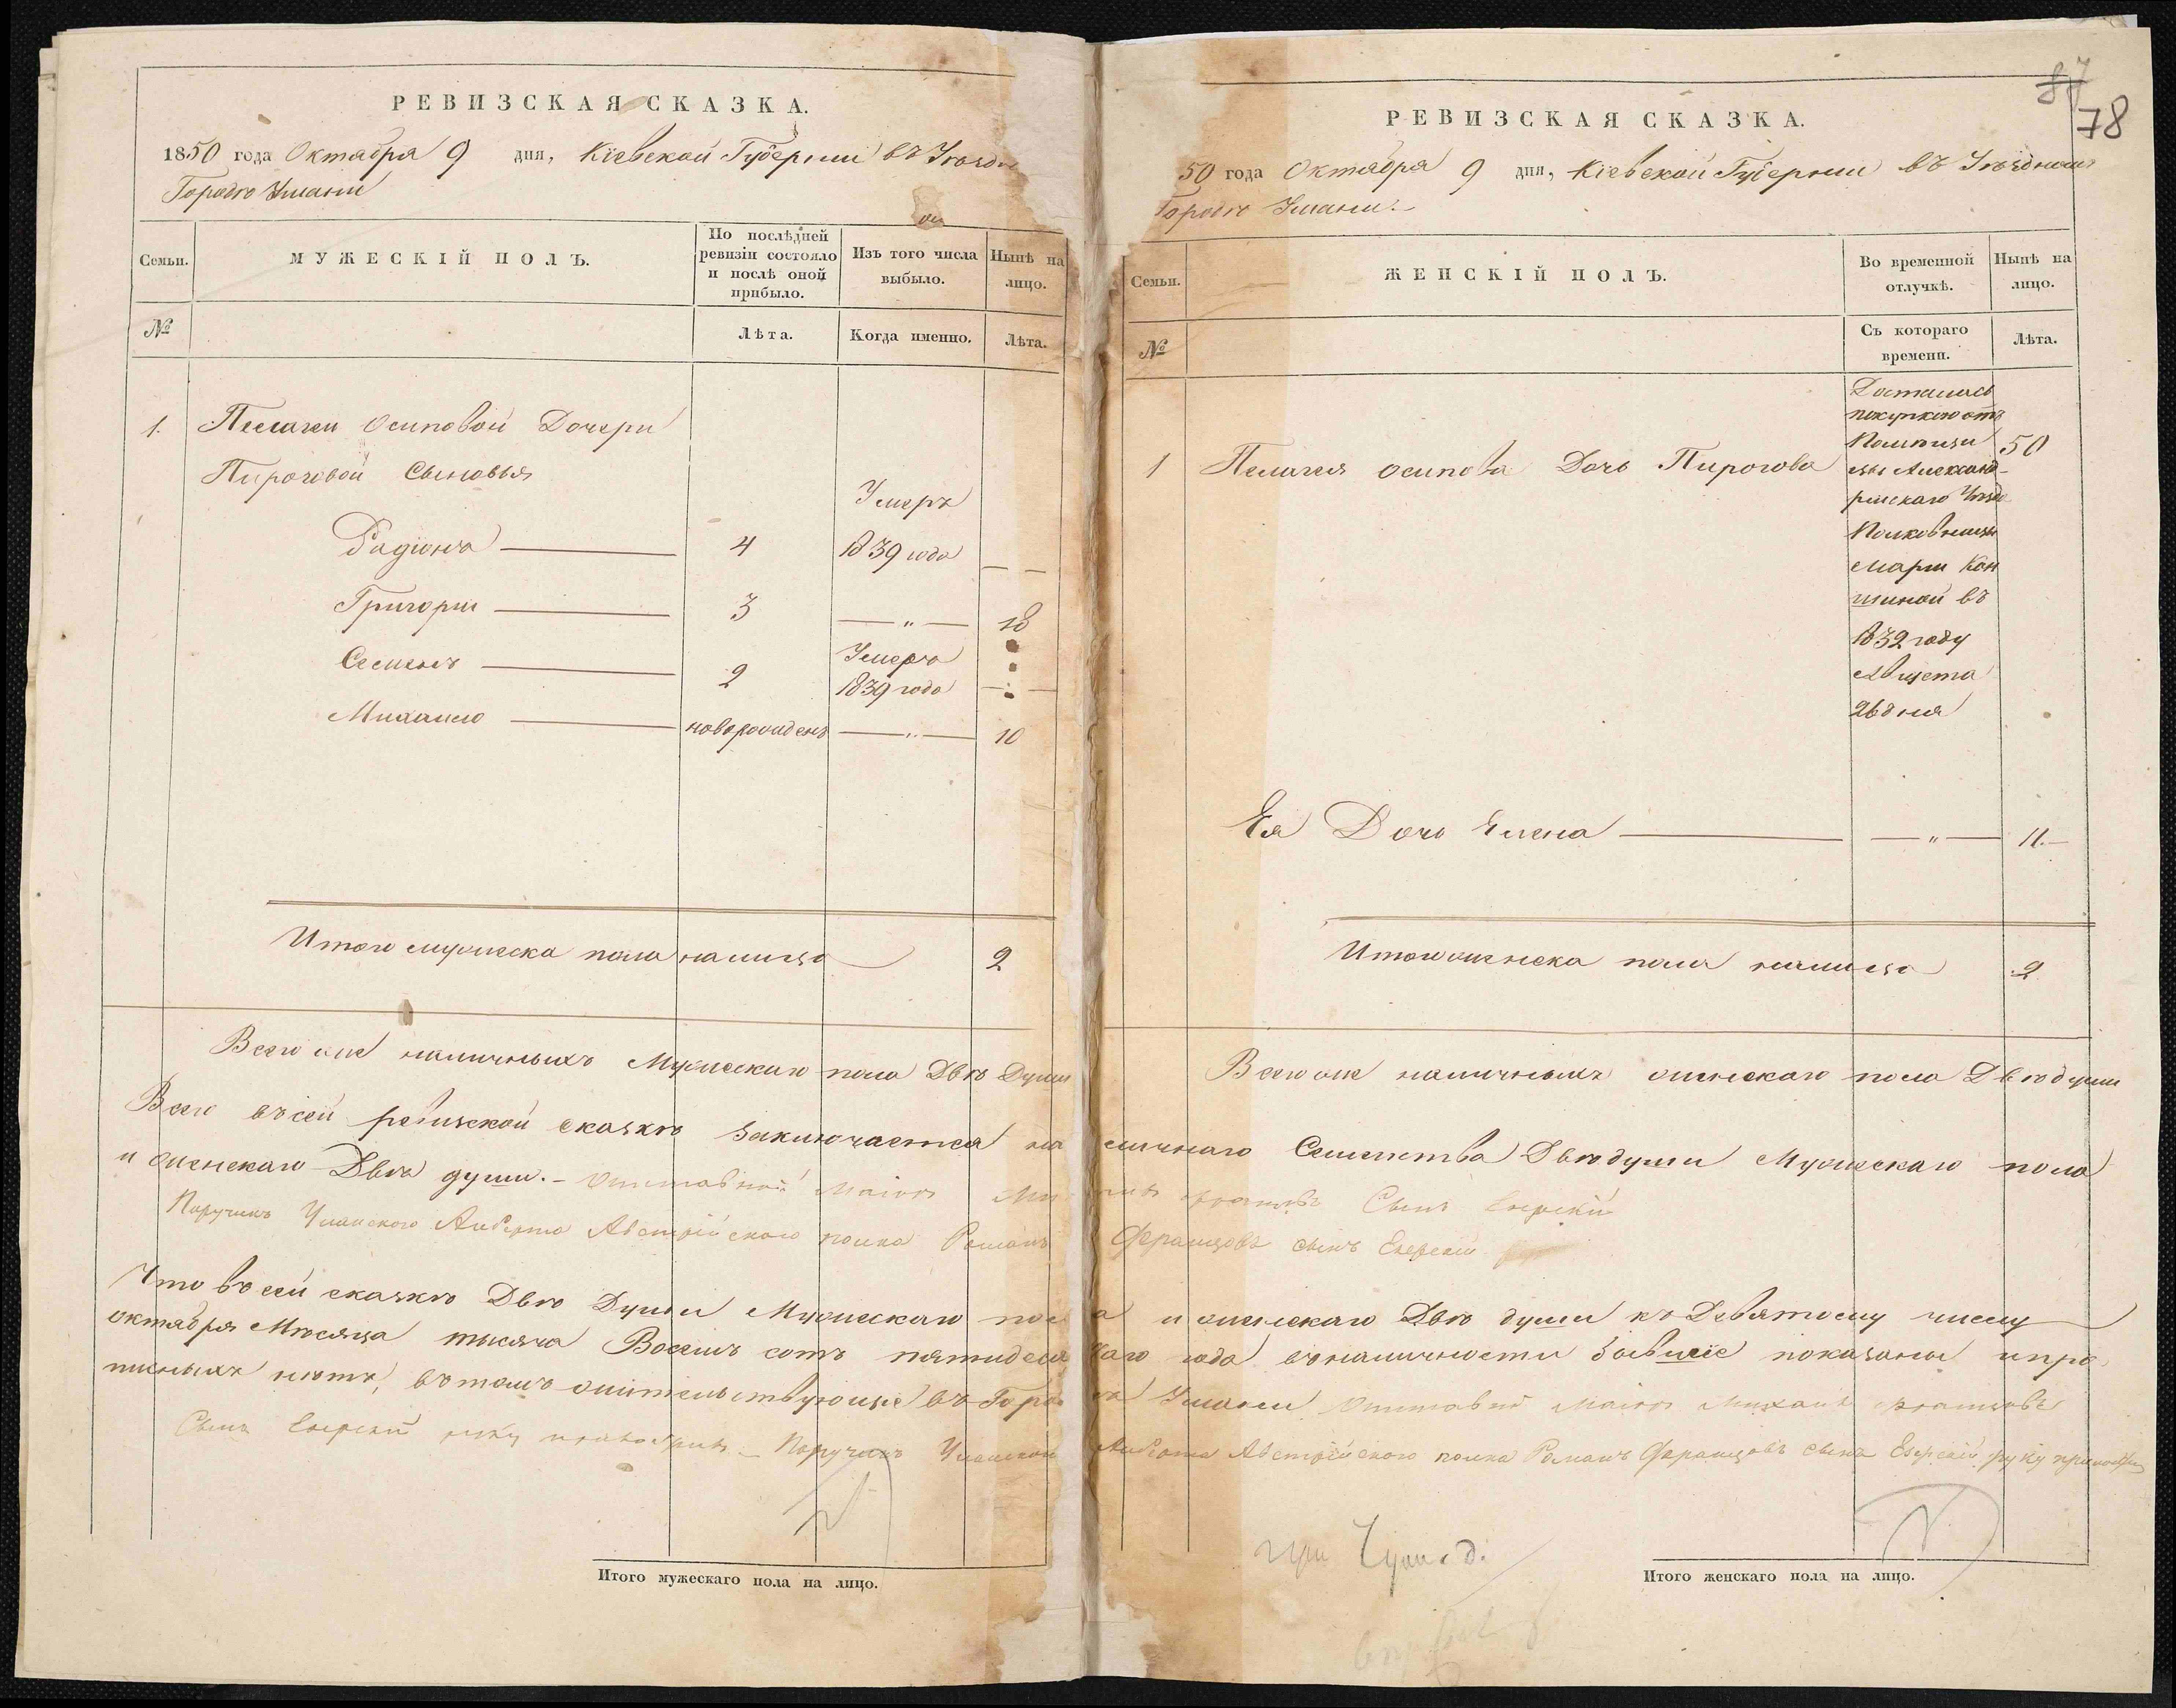 РЕВИЗСКАЯ СКАЗКА.
1850 года Октября 9 дня, Кіевской Губерніи въ Уѣздн
Городѣ Умани
Семьи.
МУЖЕСКІЙ ПОЛЪ.
По послѣдней ревизіи состояло и послѣ оной прибыло.
Изъ того числа выбыло.
Нынѣ на лицо.
№
Лѣта.
Когда именно.
Лѣта.
1. Пелагеи Осиповой Дочери
Пироговой Сыновья
Умеръ
Радіонъ 4 1839 года — —
Григорій 3 — „ — 18
Семенъ 2 Умеръ
1839 года — —
Михаило новорожденъ — „ — 10
Итого мужеска пола налицо 2
Всего же наличныхъ Мужескаго пола Двѣ Души
Всего въ сей ревизской сказкѣ Заключается на
и женскаго Двѣ души. – Отставной Маіоръ
Поручикъ Уланскаго Алберта Австрійскаго полка Романъ
Что въ сей сказкѣ Двѣ Души Мужескаго пол
октября Мѣсяца тысяча Восемь сотъ пятидеся
писныхъ нѣтъ, въ томъ жительствующіе въ Горо
Сынъ Езерскій руку приложилъ – Поручикъ Уланскаго
Итого мужескаго пола на лицо.
87
78
РЕВИЗСКАЯ СКАЗКА.
50 года Октября 9 дня, Кіевской Губерніи въ Уѣздномъ
Городѣ Умани.
Семьи.
ЖЕНСКІЙ ПОЛЪ.
Во временной отлучкѣ.
Нынѣ на лицо.
№
Съ котораго времени.
Лѣта.
1 Пелагея Осипова Дочь Пирогова
50
Досталась
покупкою отъ
Помѣщи
цы Александ-
рійскаго Уѣзда
Полковницы
Маріи Кон
шиной въ
1832 году
Августа
26 дня
Ея Дочь Елена — „ — 11.–
Итого женска пола налицо 2
Всего же наличныхъ женскаго пола Двѣ души
личнаго Семейства Двѣ души Мужескаго пола
Францовъ Сынъ Езерскій
Францовъ сынъ Езерскій
а и женскаго Двѣ души къ Девятому числу
таго года въ наличности бывшіе показаны и про
дѣ Умани Отставной Маіоръ Михаилъ Францовъ
Алберта Австрійскаго полка Романъ Францовъ сынъ Езерскій руку приложилъ
Итого женскаго пола на лицо.